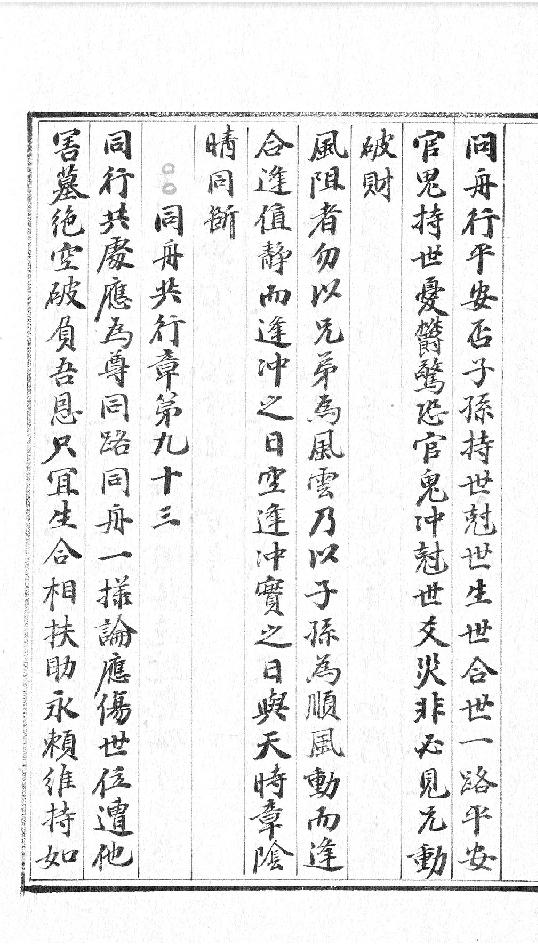 問舟行平安否子孫持世尅世生世合世一路平安
官鬼持世憂欝驚恐官鬼冲尅世爻災非必見兄動
破財
風阻者勿以兄弟為風雲乃以子孫為順風動而逢
合逢值静而逢冲之日空逢冲實之日與天時章陰
晴同斷
○○同舟共行章第九十三
同行共處應為尊同路同舟一様論應傷世位遭他
害墓绝空破負吾恩只宜生合相扶助永賴維持如